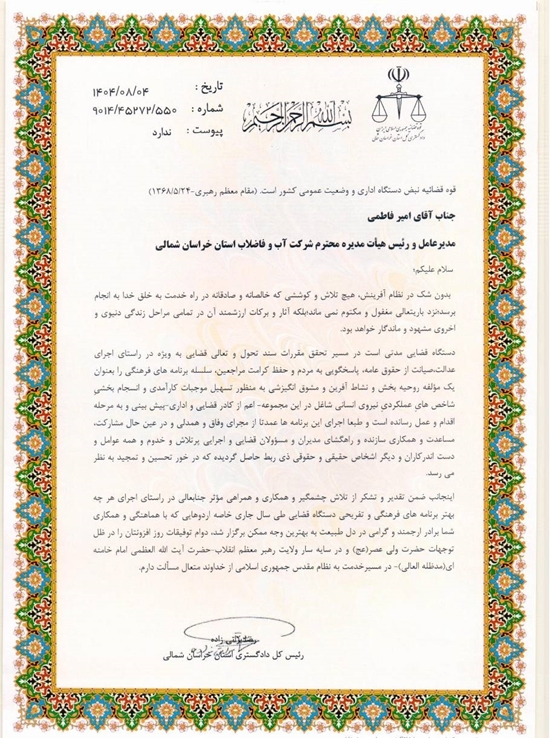 تاریخ : ۱۴۰۴/۰۸/۰۴
شماره : ۹۰۱۴/۴۵۲۷۲/۵۵۰
پیوست : ندارد
بسم الله الرحمن الرحیم
قوه قضائیه جمهوری اسلامی ایران
دادگستری کل استان خراسان شمالی
قوه قضائیه نبض دستگاه اداری و وضعیت عمومی کشور است. (مقام معظم رهبری-۱۳۶۸/۵/۲۴)
جناب آقای امیر فاطمی
مدیرعامل و رئیس هیأت مدیره محترم شرکت آب و فاضلاب استان خراسان شمالی
سلام علیکم؛
بدون شک در نظام آفرینش، هیچ تلاش و کوششی که خالصانه و صادقانه در راه خدمت به خلق خدا به انجام
برسد،نزد باریتعالی مغفول و مکتوم نمی ماند،بلکه آثار و برکات ارزشمند آن در تمامی مراحل زندگی دنیوی و
اخروی مشهود و ماندگار خواهد بود.
دستگاه قضایی مدتی است در مسیر تحقق مقررات سند تحول و تعالی قضایی به ویژه در راستای اجرای
عدالت،صیانت از حقوق عامه، پاسخگویی به مردم و حفظ کرامت مراجعین، سلسله برنامه های فرهنگی را بعنوان
یک مؤلفه روحیه بخش و نشاط آفرین و مشوق انگیزشی به منظور تسهیل موجبات کارآمدی و انسجام بخشی
شاخص های عملکردی نیروی انسانی شاغل در این مجموعه- اعم از کادر قضایی و اداری-پیش بینی و به مرحله
اقدام و عمل رسانده است و طبعا اجرای این برنامه ها عمدتا از مجرای وفاق و همدلی و در عین حال مشارکت،
مساعدت و همکاری سازنده و راهگشای مدیران و مسؤولان قضایی و اجرایی پرتلاش و خدوم و همه عوامل و
دست اندرکاران و دیگر اشخاص حقیقی و حقوقی ذی ربط حاصل گردیده که در خور تحسین و تمجید به نظر
می رسد.
اینجانب ضمن تقدیر و تشکر از تلاش چشمگیر و همکاری و همراهی مؤثر جنابعالی در راستای اجرای هر چه
بهتر برنامه های فرهنگی و تفریحی دستگاه قضایی طی سال جاری خاصه اردوهایی که با هماهنگی و همکاری
شما برادر ارجمند و گرامی در دل طبیعت به بهترین وجه ممکن برگزار شد، دوام توفیقات روز افزونتان را در ظل
توجهات حضرت ولی عصر(عج) و در سایه سار ولایت رهبر معظم انقلاب-حضرت آیت الله العظمی امام خامنه
ای(مدظله العالی)- در مسیرخدمت به نظام مقدس جمهوری اسلامی از خداوند متعال مسألت دارم.
زاده
رئیس کل دادگستری استان خراسان شمالی